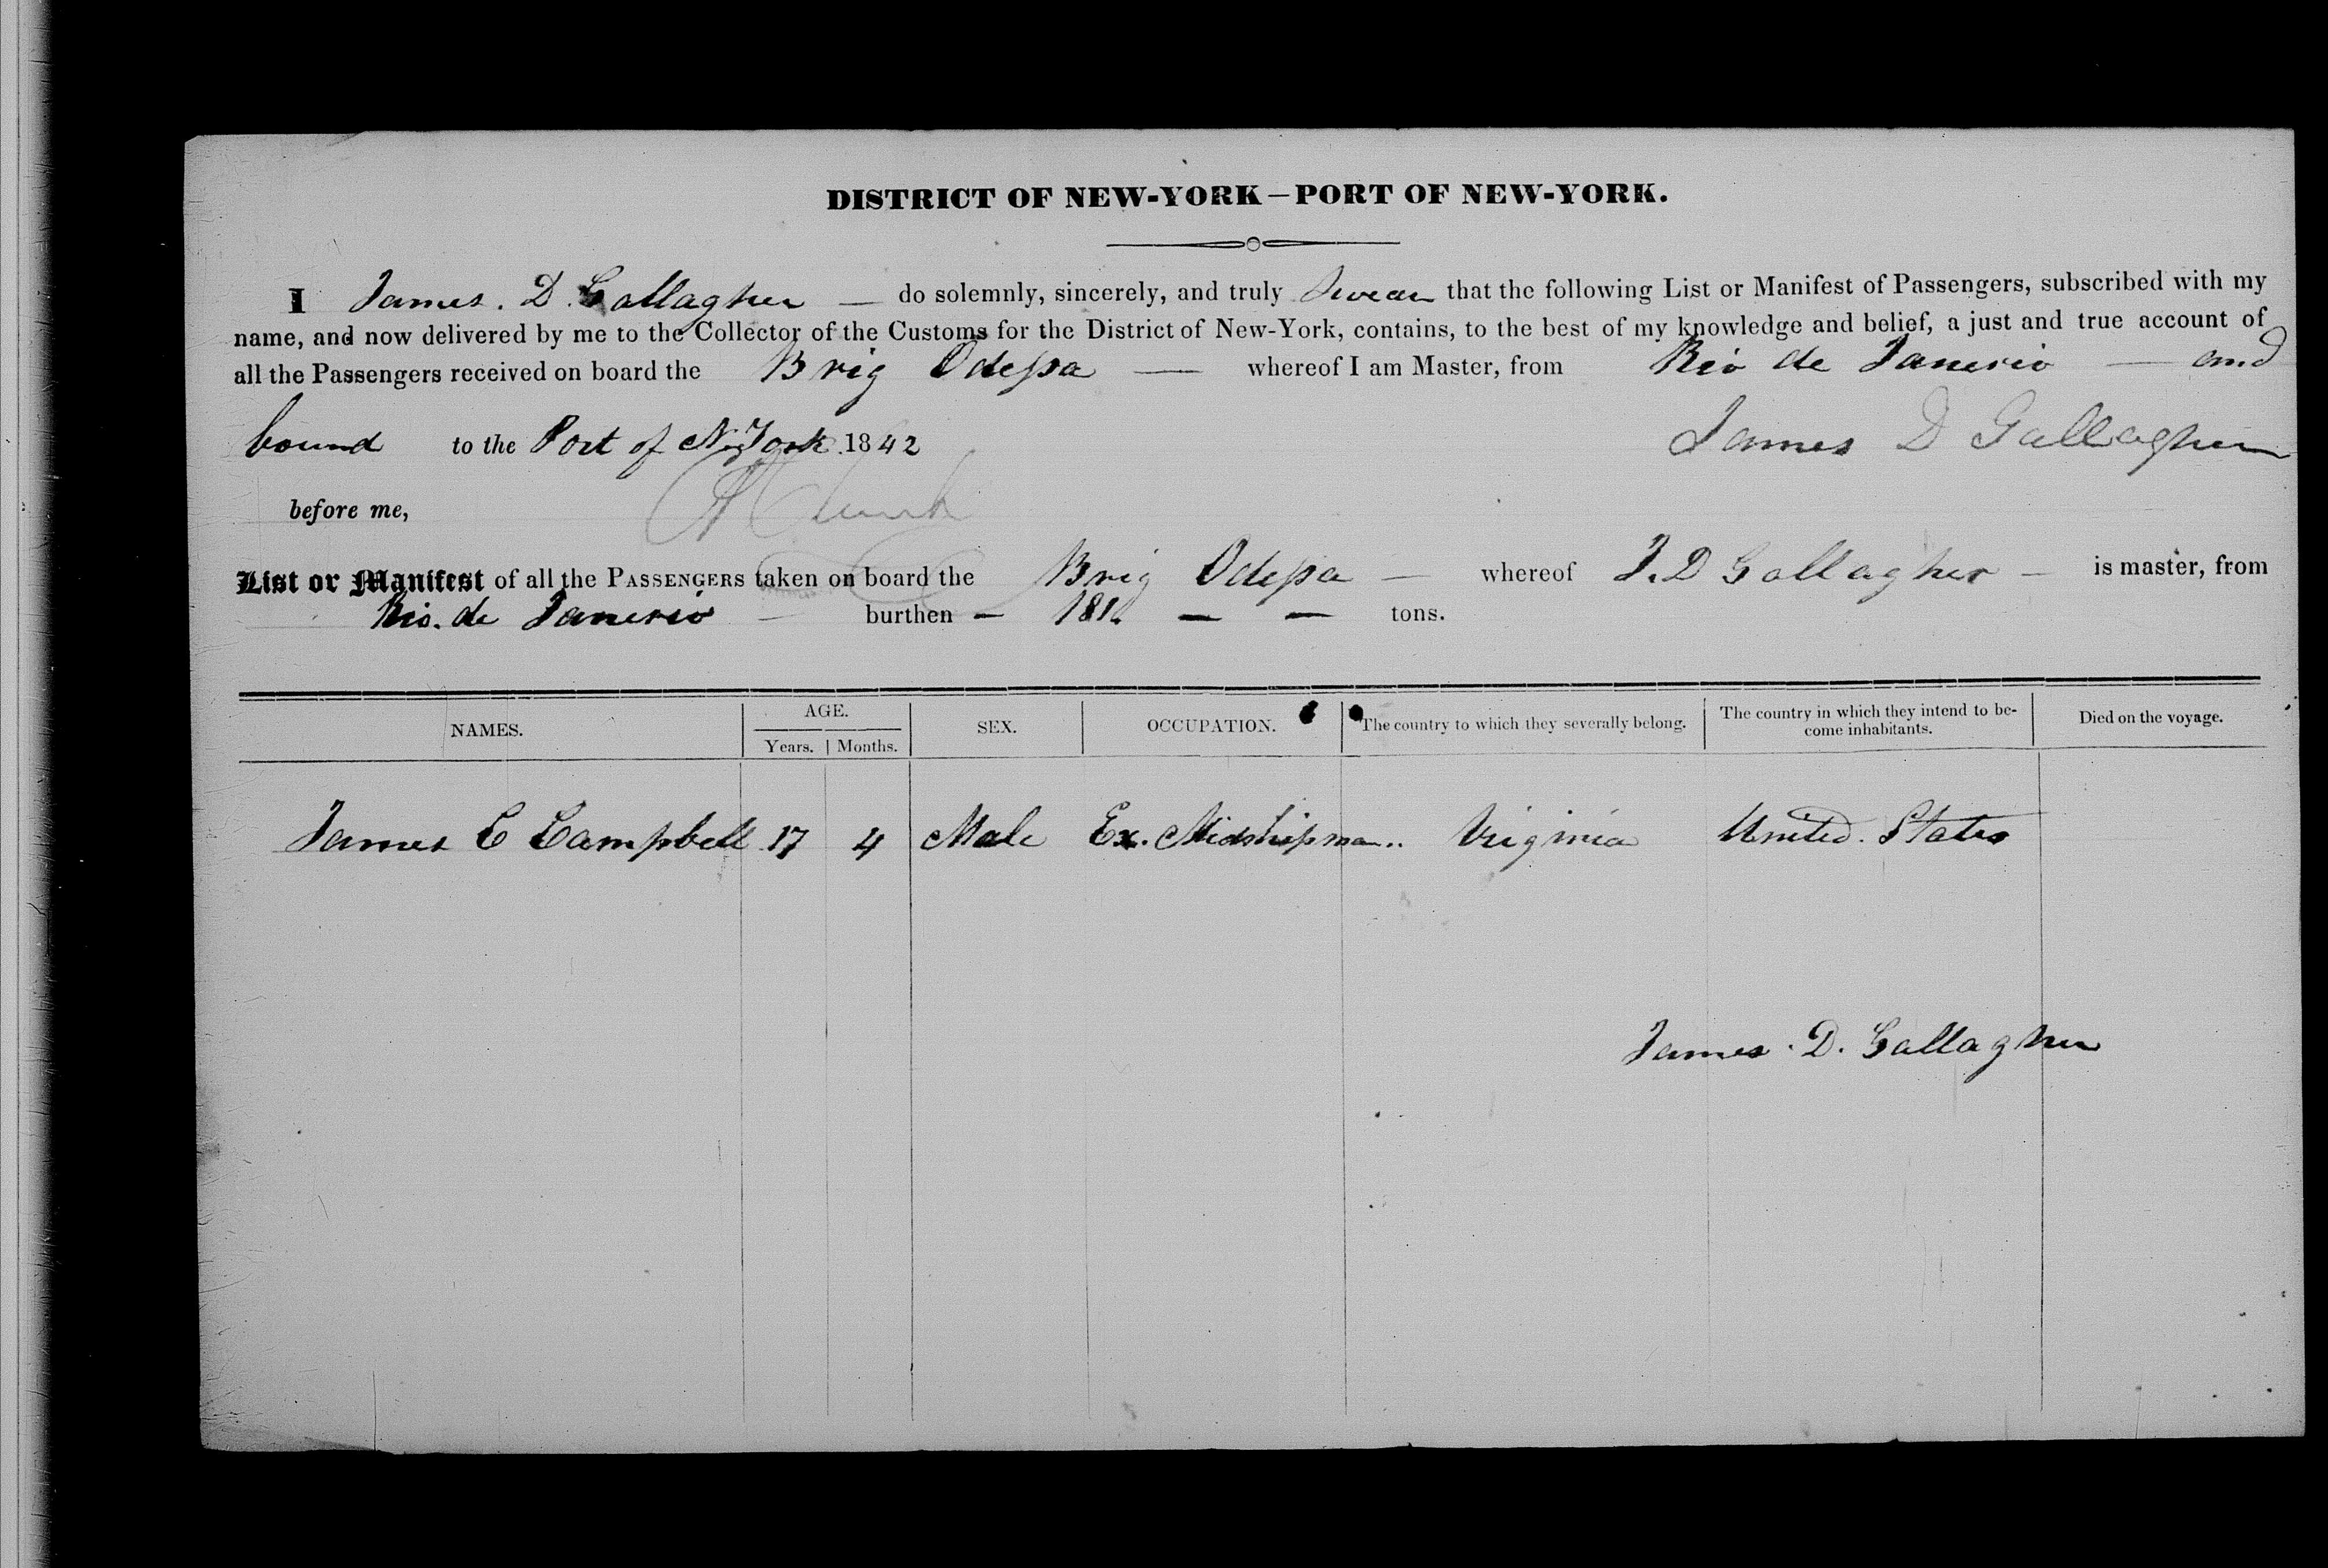 DISTRICT OF NEW-YORK—PORT OF NEW-YORK.
I James. D. Gallagher — do solemnly, sincerely, and truly Swear that the following List or Manifest of Passengers, subscribed with my
name, and now delivered by me to the Collector of the Customs for the District of New-York, contains, to the best of my knowledge and belief, a just and true account of
all the Passengers received on board the Brig Odessa — whereof I am Master, from Rio de Janerio — and
bound to the Port of N. York 1842 James D Gallagher
before me,
List or Manifest of all the PASSENGERS taken on board the Brig Odessa — whereof J. D Gallagher — is master, from
Rio. de Janerio — burthen — — — tons.
NAMES. AGE. Years. Months. SEX. OCCUPATION. The country to which they severally belong. The country in which they intend to be-
come inhabitants. Died on the voyage.
James C Campbell 17 4 Male Ex. Midshipman.. Virginia United. States
James. D. Gallagher